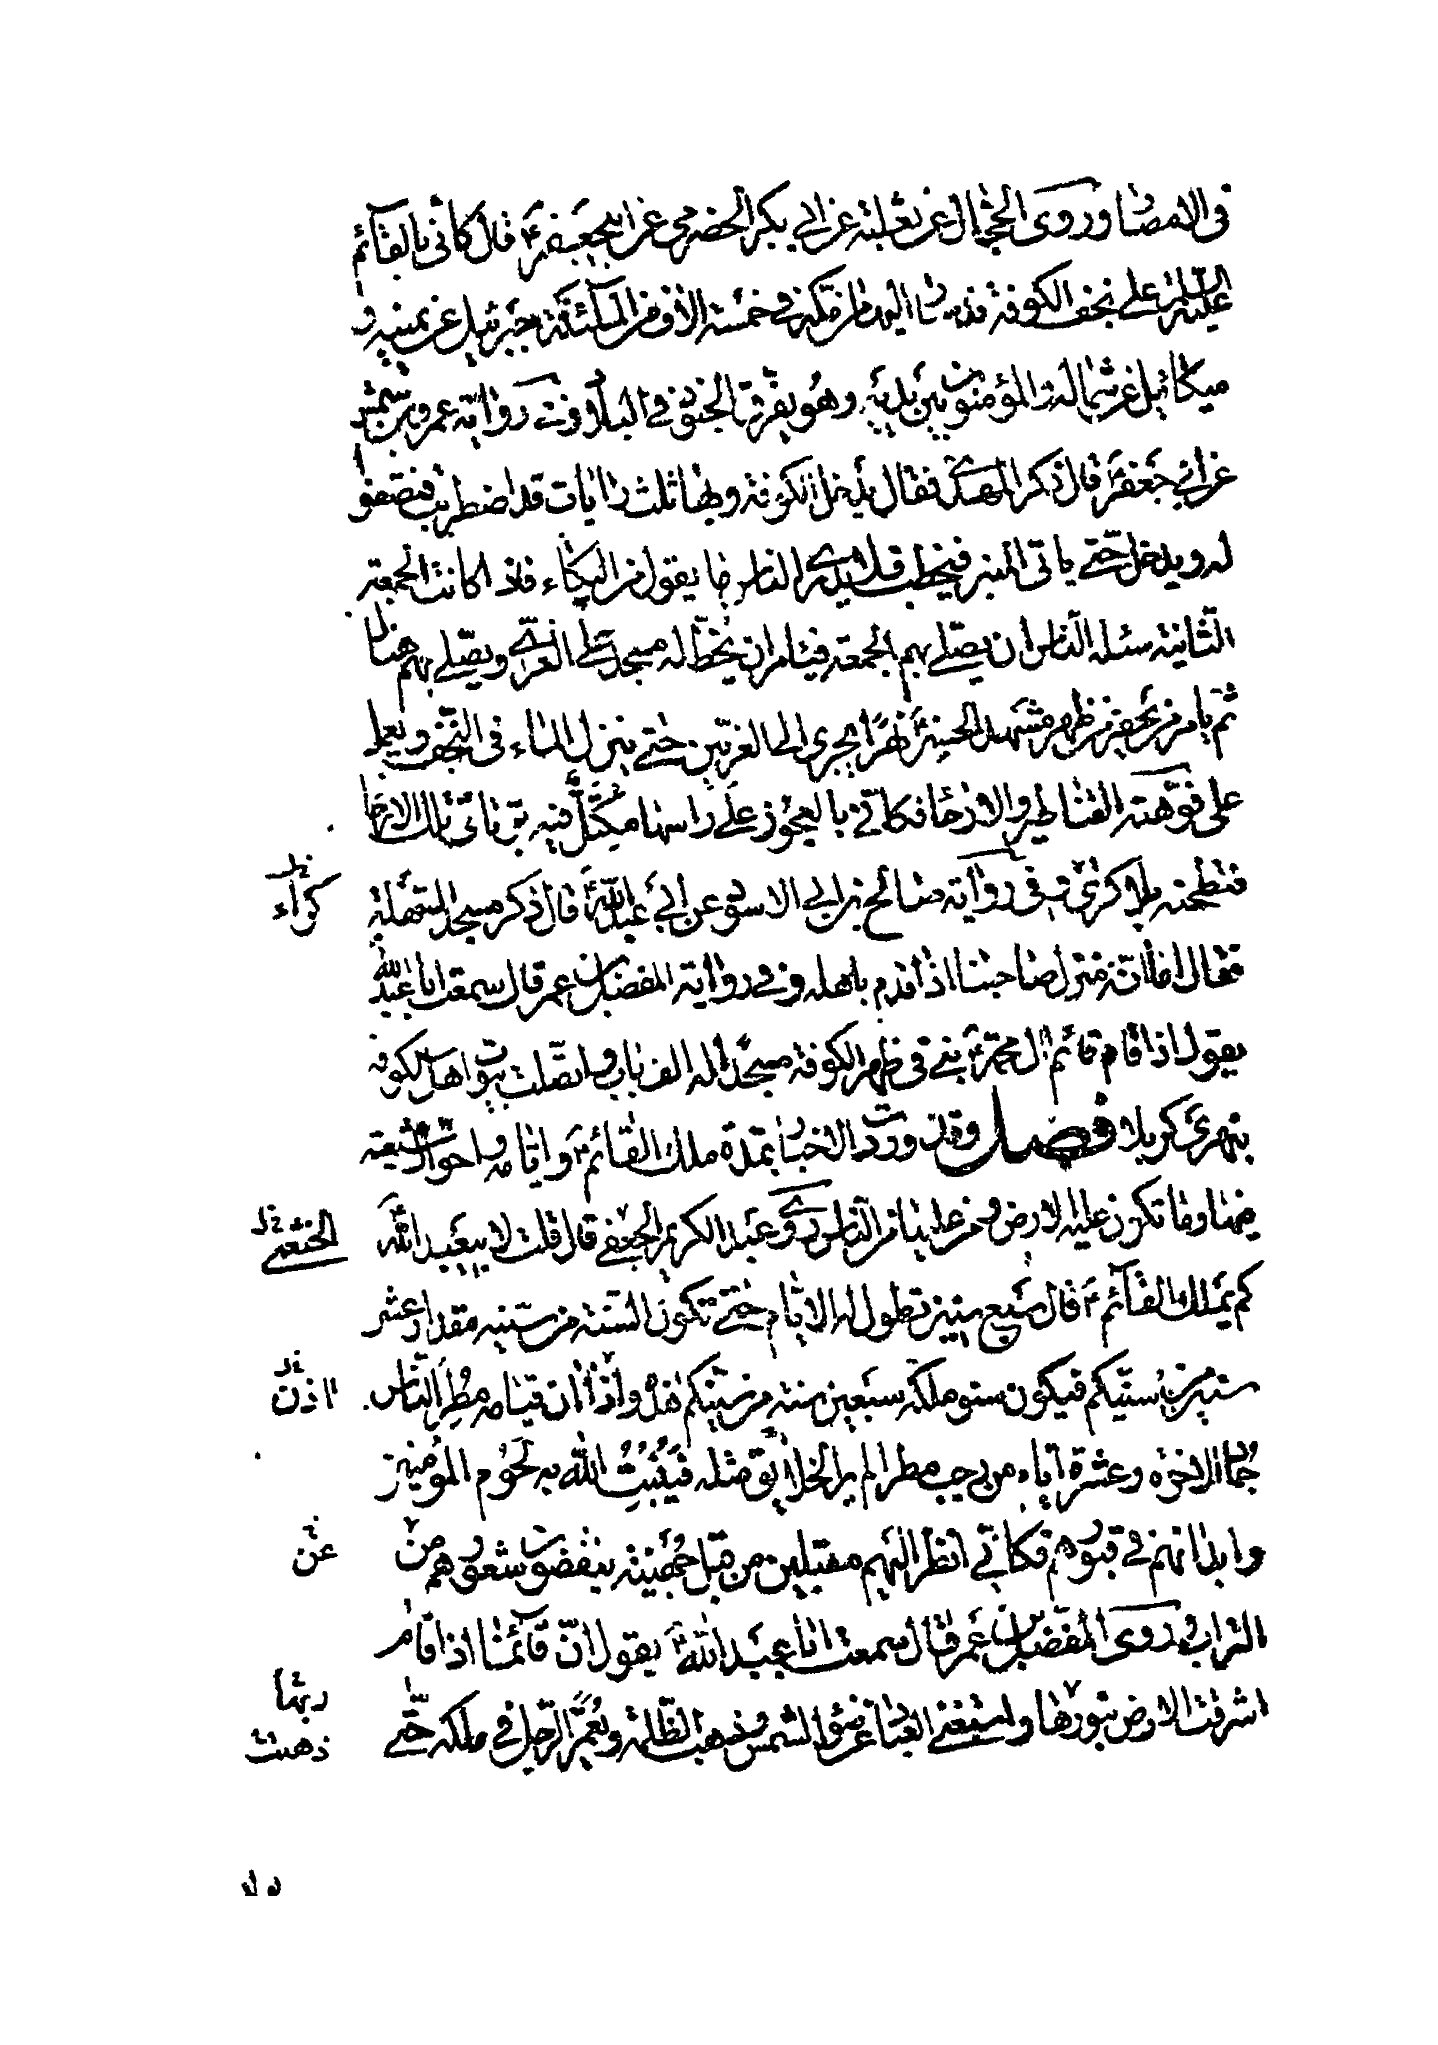 في الامصار وروى الحجّال عن ثعلبة عن ابي بكر الحضرمي عن ابيجعفر ع قال كانّي بالقآئم
عليه السلم على نجف الكوفة قد سار اليها من مكة في خمسة الاف من الملٰئكة جبرئيل عن يمينه و
ميكائيل عن شماله والمؤمنون بين يديه وهو يفرق الجنود في البلاد وفي رواية عمرو بن شمر
عن ابي جعفر ع قال ذكر المهدي فقال يدخل الكوفة وبها ثلث رايات قد اضطربت فتصفوا
له ويدخل حتى ياتى المنبر فيخطب فلا يدري الناس ما يقول من البكاء فاذا كانت الجمعة
الثانية سئله الناس ان يصلّي بهم الجمعة فيامر ان يخطّ له مسجد على الغري ويصلّي بهم هناك
ثم يامر من يحفر من ظهر مشهد الحسين ع نهرًا يجرى الى الغريّين حتى ينزل الماء في النّجف ويعمل
على فوّهته القناطير والارحاء فكانّي بالعجوز على راسها مكتل فيه برّ تاتى تلك الارحاء
فتطحنه بلا كرى وفي رواية صالح بن ابي الاسود عن ابي عبد الله ع قال ذكر مسجد السّهلة
خ ل كراء
فقال اما انّه منزل صاحبنا اذا قدم باهله وفي رواية المفضل بن عمر قال سمعت ابا عبد الله
يقول اذا قام قائم ال محمد ع بنى في ظهر الكوفة مسجدًا له الف باب واتصلت بيوت اهل الكوفه
بنهري كربلا فصل وقد وردت الاخبار بمدة ملك القائم ع وايامه واحوال شيعته
فيها وما تكون عليه الارض ومن عليها من الناس روى عبد الكريم الجعفي قال قلت لابيعبد الله
الخثعمي خ ل
كم يملك القآئم ع قال سبع سنين تطول له الايام حتى تكون السّنة من سنيه مقدار عشر
سنين من سنيّكم فيكون سنو ملكه سبعين سنة من سنيكم هذه واذا ان قيامه مطر النّاس
اذن خ ل
جمادى الاخره وعشرة ايام من رجب مطرا لم ير الخلايق مثله فيُنبتُ الله به لحوم المؤمنين
وابدانهم في قبورهم فكانّي انظر اليهم مقبلين من قبل جُهينة ينفضون شعورهم من
عن خ
التراب وروى المفضل بن عمر قال سمعت ابا عبد الله ع يقول انّ قآئمنا اذا قام
اشرقت الارض بنورها واستغنى العباد عن ضوء الشمس وذهبت الظّلمة ويُعمّر الرّجل في ملكه حتّى
ربّها
ذهبت